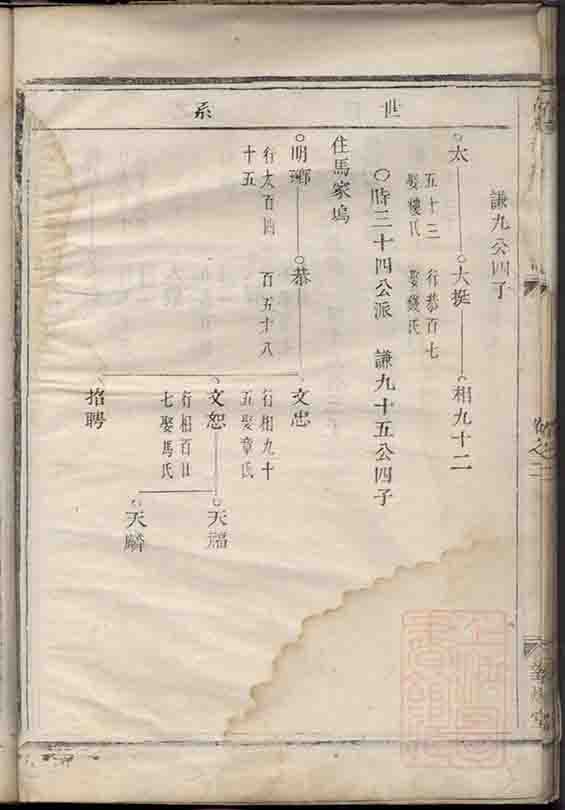 世系
謙九公四子
太
五十三
娶樓氏
大挺
行恭百七
娶錢氏
相九十二
時三十四公派 謙九十五公四子
住馬家塢
明瑯
行太百四
十五
恭
百五十八
文忠
行相九十
五娶章氏
文恕
行相百廿
七娶馬氏
招聘
天福
天麟